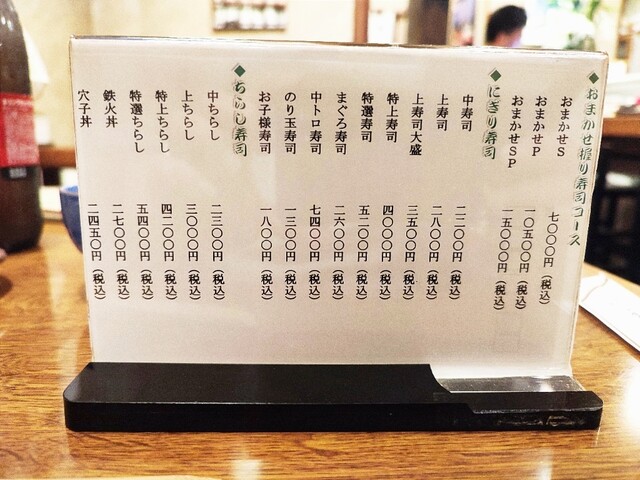 ◆おまかせ握り寿司コース
おまかせS 七〇〇〇円（税込）
おまかせP 一〇五〇〇円（税込）
おまかせSP 一五〇〇〇円（税込）
◆にぎり寿司
中寿司 二二〇〇円（税込）
上寿司 二八〇〇円（税込）
上寿司大盛 三五〇〇円（税込）
特上寿司 四〇〇〇円（税込）
特選寿司 五二〇〇円（税込）
まぐろ寿司 二六〇〇円（税込）
中トロ寿司 七四〇〇円（税込）
のり玉寿司 一三〇〇円（税込）
お子様寿司 一八〇〇円（税込）
◆ちらし寿司
中ちらし 二三〇〇円（税込）
上ちらし 三〇〇〇円（税込）
特上ちらし 四二〇〇円（税込）
特選ちらし 五四〇〇円（税込）
鉄火丼 二七〇〇円（税込）
穴子丼 二四五〇円（税込）